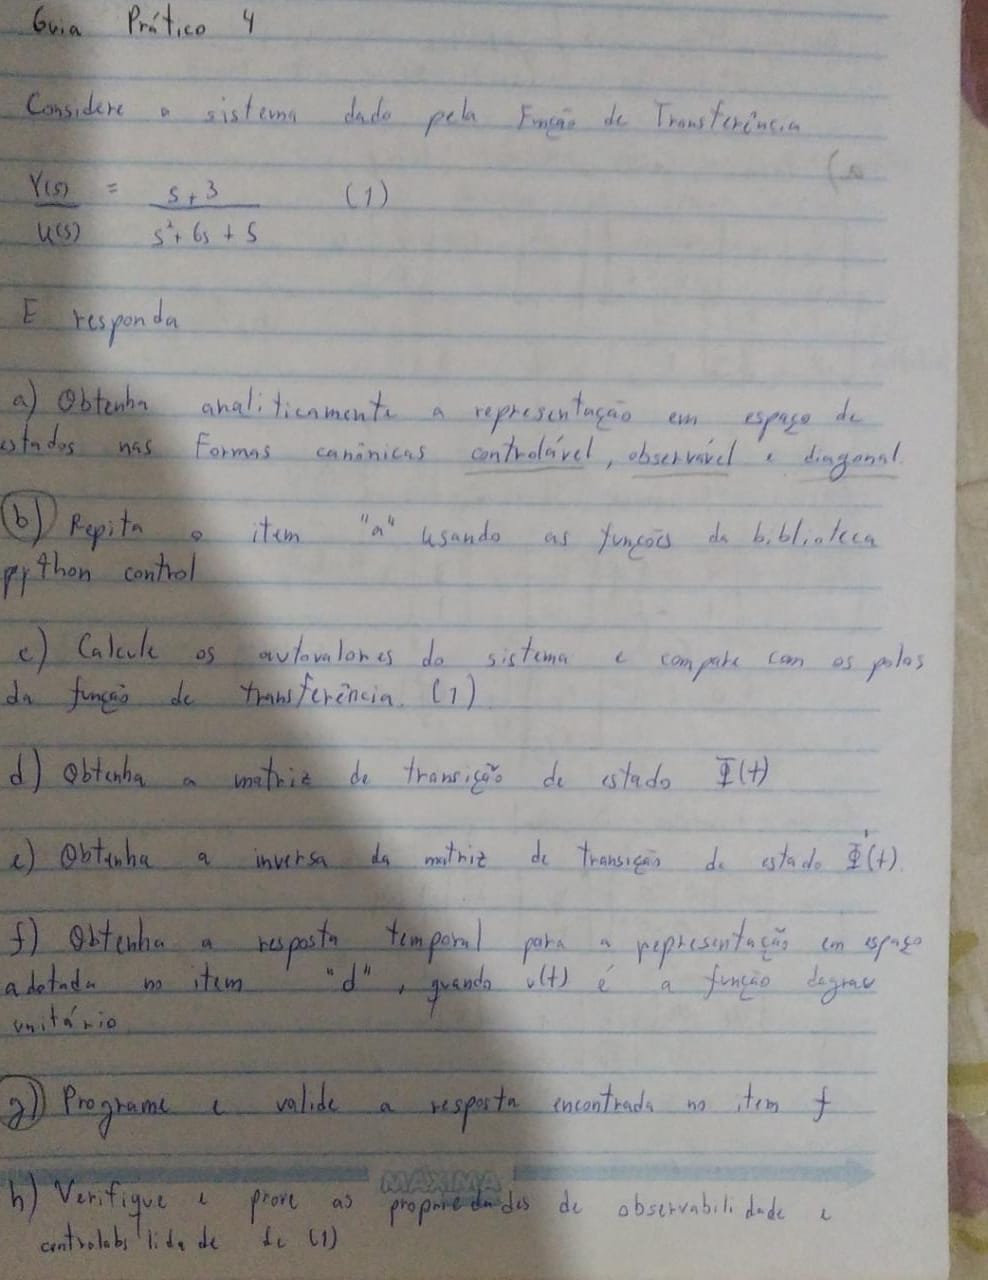 Guia Prático 4
Considere o sistema dado pela Função de Transferência
Y(s) = s + 3 (1)
U(s) s² + 6s + 5
E responda
a) Obtenha analiticamente a representação em espaço de
estados nas Formas canônicas controlável, observável e diagonal.
b) Repita o item "a" usando as funções da biblioteca
python control
c) Calcule os autovalores do sistema e compare com os polos
da função de transferência. (1)
d) Obtenha a matriz de transição de estado Φ(t)
e) Obtenha a inversa da matriz de transição de estado Φ(t).
f) Obtenha a resposta temporal para a representação em espaço
adotada no item "d", quando u(t) é a função degrau
unitário
g) Programe e valide a resposta encontrada no item f
MÁXIMA
h) Verifique e prove as propriedades de observabilidade e
controlabilidade de (1)